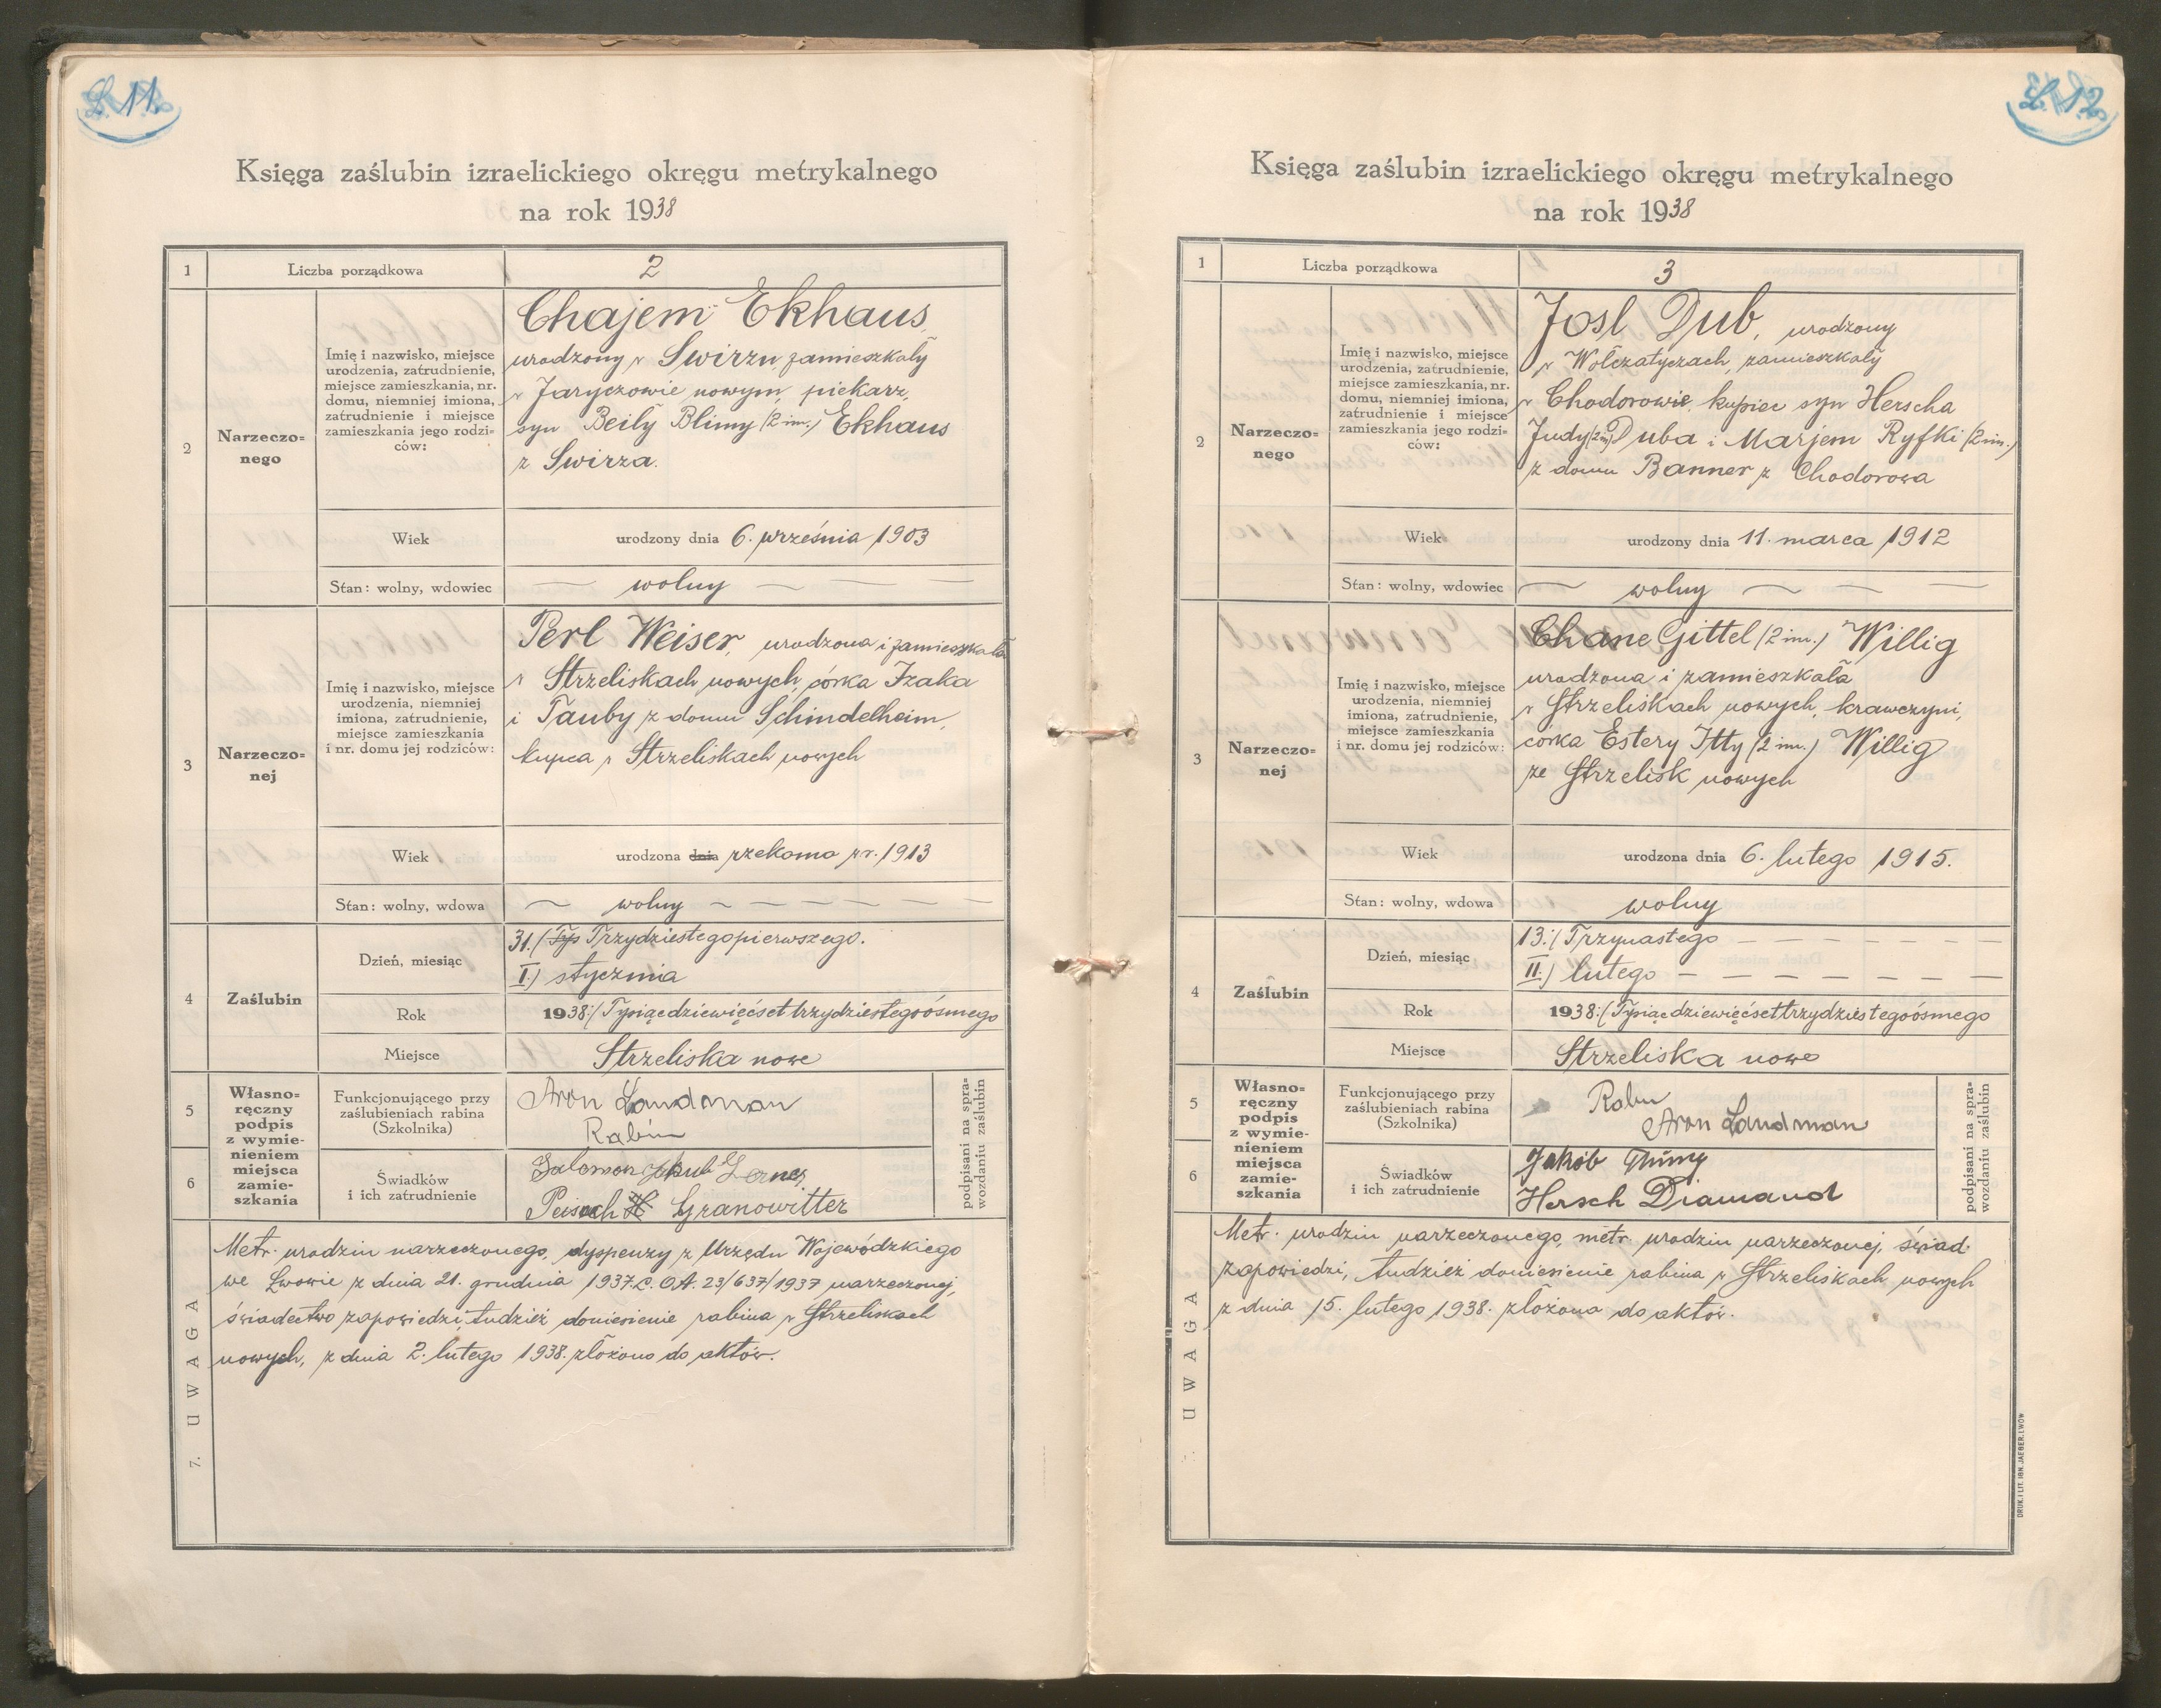 L. 11.
Księga zaślubin izraelickiego okręgu metrykalnego
na rok 1938
1 Liczba porządkowa 2
2 Narzeczo=
nego
Imię i nazwisko, miejsce
urodzenia, zatrudnienie,
miejsce zamieszkania, nr.
domu, niemniej imiona,
zatrudnienie i miejsce
zamieszkania jego rodzi=
ców:
Chajem Ekhaus,
urodzony w Swirzu, zamieszkały
w Jaryczowie nowym, piekarz,
syn Beily Blimy (2 im.) Ekhaus
z Swirza.
Wiek urodzony dnia 6. września 1903
Stan: wolny, wdowiec wolny
3 Narzeczo=
nej
Imię i nazwisko, miejsce
urodzenia, niemniej
imiona, zatrudnienie,
miejsce zamieszkania
i nr. domu jej rodziców:
Perl Weiser, urodzona i zamieszkała
w Strzeliskach nowych, córka Izaka
i Tauby z domu Schindelheim,
kupca w Strzeliskach nowych
Wiek urodzona dnia rzekomo w r. 1913
Stan: wolny, wdowa wolny
4 Zaślubin
Dzień, miesiąc
31./ Typ Trzydziestegopierwszego.
I.) stycznia
Rok 1938:/ Tysiącdziewięćset trzydziestegoósmego
Miejsce Strzeliska nowe
5
6
Własno=
ręczny
podpis
z wymie-
nieniem
miejsca
zamie-
szkania
Funkcjonującego przy
zaślubieniach rabina
(Szkolnika)
Aron Landman
Rabin
Świadków
i ich zatrudnienie
Salomon Jakub Lerner
Peisach H Granowitter
podpisani na spra-
wozdaniu zaślubin
7. UWAGA
Metr. urodzin narzeczonego, dyspenzy z Urzędu Wojewódzkiego
we Lwowie z dnia 21. grudnia 1937. L. O.A. 23/637/1937 narzeczonej,
świadectwo zapowiedzi, tudzież doniesienie rabina w Strzeliskach
nowych, z dnia 2. lutego 1938. złożono do aktów.
L. 12.
Księga zaślubin izraelickiego okręgu metrykalnego
na rok 1938
1 Liczba porządkowa 3
2 Narzeczo=
nego
Imię i nazwisko, miejsce
urodzenia, zatrudnienie,
miejsce zamieszkania, nr.
domu, niemniej imiona,
zatrudnienie i miejsce
zamieszkania jego rodzi=
ców:
Josl Dub, urodzony
w Wołczatyczach, zamieszkały
w Chodorowie, kupiec syn Herscha
Judy (2 im) Duba i Marjem Ryfki (2 im.)
z domu Banner z Chodorowa
Wiek urodzony dnia 11. marca 1912
Stan: wolny, wdowiec wolny
3 Narzeczo=
nej
Imię i nazwisko, miejsce
urodzenia, niemniej
imiona, zatrudnienie,
miejsce zamieszkania
i nr. domu jej rodziców:
Chane Gittel (2 im.) Willig
urodzona i zamieszkała
w Strzeliskach nowych, krawczyni,
córka Estery Itty (2 im.) Willig
ze Strzelisk nowych
Wiek urodzona dnia 6. lutego 1915.
Stan: wolny, wdowa wolny
4 Zaślubin
Dzień, miesiąc
13:/ Trzynastego
II.) lutego
Rok 1938:/ Tysiącdziewięćsettrzydziestegoósmego
Miejsce Strzeliska nowe
5
6
Własno=
ręczny
podpis
z wymie-
nieniem
miejsca
zamie-
szkania
Funkcjonującego przy
zaślubieniach rabina
(Szkolnika)
Rabin
Aron Landman
Świadków
i ich zatrudnienie
Jakób
Hersch Diamand
podpisani na spra-
wozdaniu zaślubin
UWAGA
Metr. urodzin narzeczonego, metr. urodzin narzeczonej, świad.
zapowiedzi, tudzież doniesienie rabina w Strzeliskach nowych
z dnia 15. lutego 1938. złożono do aktów.
DRUK. I LIT. IGN. JAEGER, LWÓW